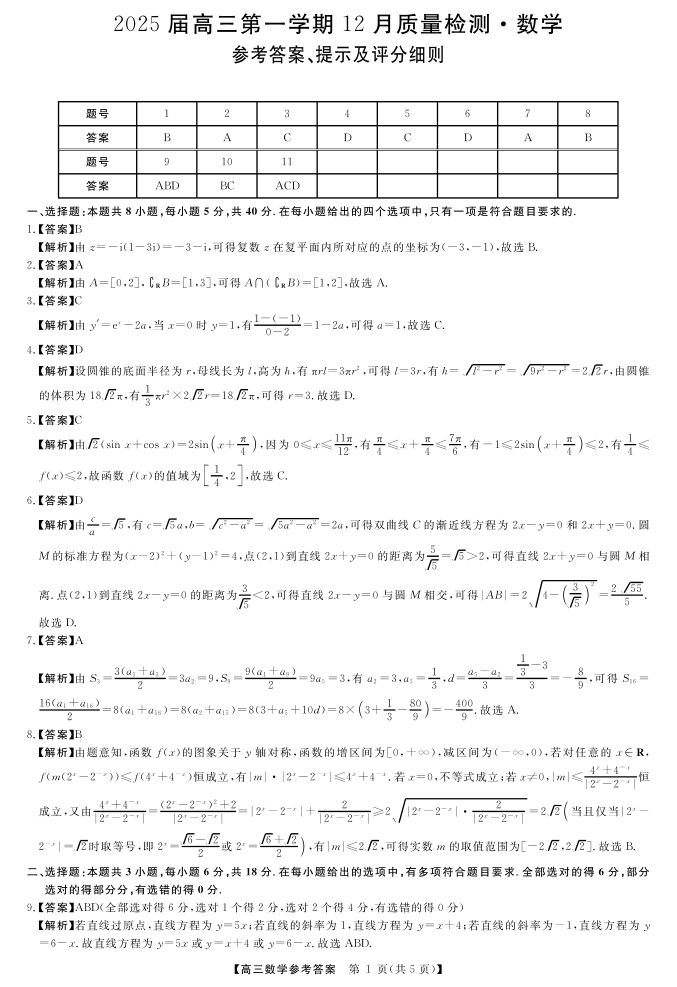 2025 届高三第一学期 12 月质量检测·数学
参考答案、提示及评分细则
题号 1 2 3 4 5 6 7 8
答案 B A C D C D A B
题号 9 10 11
答案 ABD BC ACD
一、选择题:本题共 8 小题,每小题 5 分,共 40 分. 在每小题给出的四个选项中,只有一项是符合题目要求的.
1.【答案】B
【解析】由 z=-i(1-3i)=-3-i,可得复数 z 在复平面内所对应的点的坐标为(-3,-1),故选 B.
2.【答案】A
【解析】由 A=[0,2],∁RB=[1,3],可得 A∩(∁RB)=[1,2],故选 A.
3.【答案】C
【解析】由 y′=eˣ-2a,当 x=0 时 y=1,有 (1-(-1))/(0-2)=1-2a,可得 a=1,故选 C.
4.【答案】D
【解析】设圆锥的底面半径为 r,母线长为 l,高为 h,有 πrl=3πr²,可得 l=3r,有 h=√(l²-r²)=√(9r²-r²)=2√2r,由圆锥
的体积为 18√2π,有 1/3πr²×2√2r=18√2π,可得 r=3. 故选 D.
5.【答案】C
【解析】由√2(sin x+cos x)=2sin(x+π/4),因为 0≤x≤11π/12,有 π/4≤x+π/4≤7π/6,有-1≤2sin(x+π/4)≤2,有 1/4≤
f(x)≤2,故函数 f(x)的值域为[1/4,2],故选 C.
6.【答案】D
【解析】由 c/a=√5,有 c=√5a,b=√(c²-a²)=√(5a²-a²)=2a,可得双曲线 C 的渐近线方程为 2x-y=0 和 2x+y=0. 圆
M 的标准方程为(x-2)²+(y-1)²=4,点(2,1)到直线 2x+y=0 的距离为 5/√5=√5>2,可得直线 2x+y=0 与圆 M 相
离. 点(2,1)到直线 2x-y=0 的距离为 3/√5<2,可得直线 2x-y=0 与圆 M 相交,可得|AB|=2√(4-(3/√5)²)=2√55/5.
故选 D.
7.【答案】A
【解析】由 S₃=3(a₁+a₃)/2=3a₂=9,S₉=9(a₁+a₉)/2=9a₅=3,有 a₂=3,a₅=1/3,d=(a₅-a₂)/3=(1/3-3)/3=-8/9,可得 S₁₆=
16(a₁+a₁₆)/2=8(a₁+a₁₆)=8(a₂+a₁₅)=8(3+a₅+10d)=8×(3+1/3-80/9)=-400/9. 故选 A.
8.【答案】B
【解析】由题意知,函数 f(x)的图象关于 y 轴对称,函数的增区间为[0,+∞),减区间为(-∞,0),若对任意的 x∈R,
f(m(2ˣ-2⁻ˣ))≤f(4ˣ+4⁻ˣ)恒成立,有|m|·|2ˣ-2⁻ˣ|≤4ˣ+4⁻ˣ. 若 x=0,不等式成立;若 x≠0,|m|≤(4ˣ+4⁻ˣ)/|2ˣ-2⁻ˣ|恒
成立,又由 (4ˣ+4⁻ˣ)/|2ˣ-2⁻ˣ|=((2ˣ-2⁻ˣ)²+2)/|2ˣ-2⁻ˣ|=|2ˣ-2⁻ˣ|+2/|2ˣ-2⁻ˣ|≥2√(|2ˣ-2⁻ˣ|·2/|2ˣ-2⁻ˣ|)=2√2(当且仅当|2ˣ-
2⁻ˣ|=√2时取等号,即 2ˣ=(√6-√2)/2 或 2ˣ=(√6+√2)/2),有|m|≤2√2,可得实数 m 的取值范围为[-2√2,2√2]. 故选 B.
二、选择题:本题共 3 小题,每小题 6 分,共 18 分. 在每小题给出的选项中,有多项符合题目要求. 全部选对的得 6 分,部分
选对的得部分分,有选错的得 0 分.
9.【答案】ABD(全部选对得 6 分,选对 1 个得 2 分,选对 2 个得 4 分,有选错的得 0 分)
【解析】若直线过原点,直线方程为 y=5x;若直线的斜率为 1,直线方程为 y=x+4;若直线的斜率为-1,直线方程为 y
=6-x. 故直线方程为 y=5x 或 y=x+4 或 y=6-x. 故选 ABD.
【高三数学参考答案 第 1 页(共 5 页)】